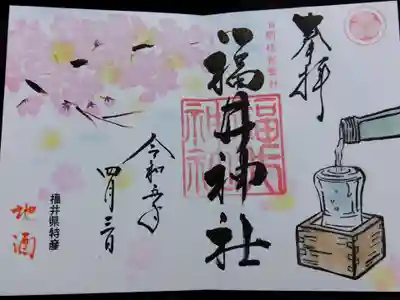 奉拝
福井神社
福井神社
令和五年
四月三日
福井県特産
地酒